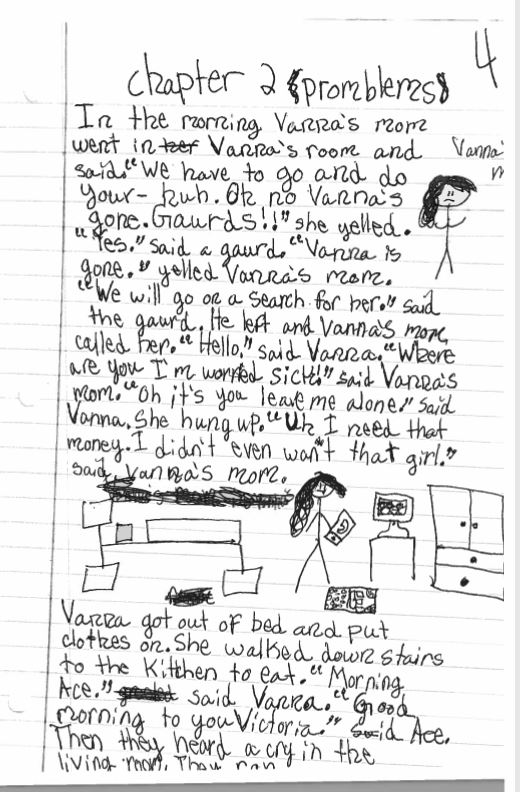 4
chapter 2 {promblems}
In the morning Vanna's mom
went in Vanna's room and
said. "We have to go and do
your- huh. Oh no Vanna's
gone. Gaurds!!" she yelled.
"Yes." said a gaurd. "Vanna is
gone." yelled Vanna's mom.
"We will go on a search for her." said
the gaurd. He left and Vanna's mom
called her. "Hello." said Vanna. "Where
are you I'm worried sick!" said Vanna's
mom. "Oh it's you leave me alone." said
Vanna. She hung up. "Uh I need that
money. I didn't even want that girl."
said Vanna's mom.
Vanna'
m
Vanna got out of bed and put
clothes on. She walked down stairs
to the Kitchen to eat. "Morning
Ace." said Vanna. "Good
morning to you Victoria." said Ace.
Then they heard a cry in the
living room. They ran